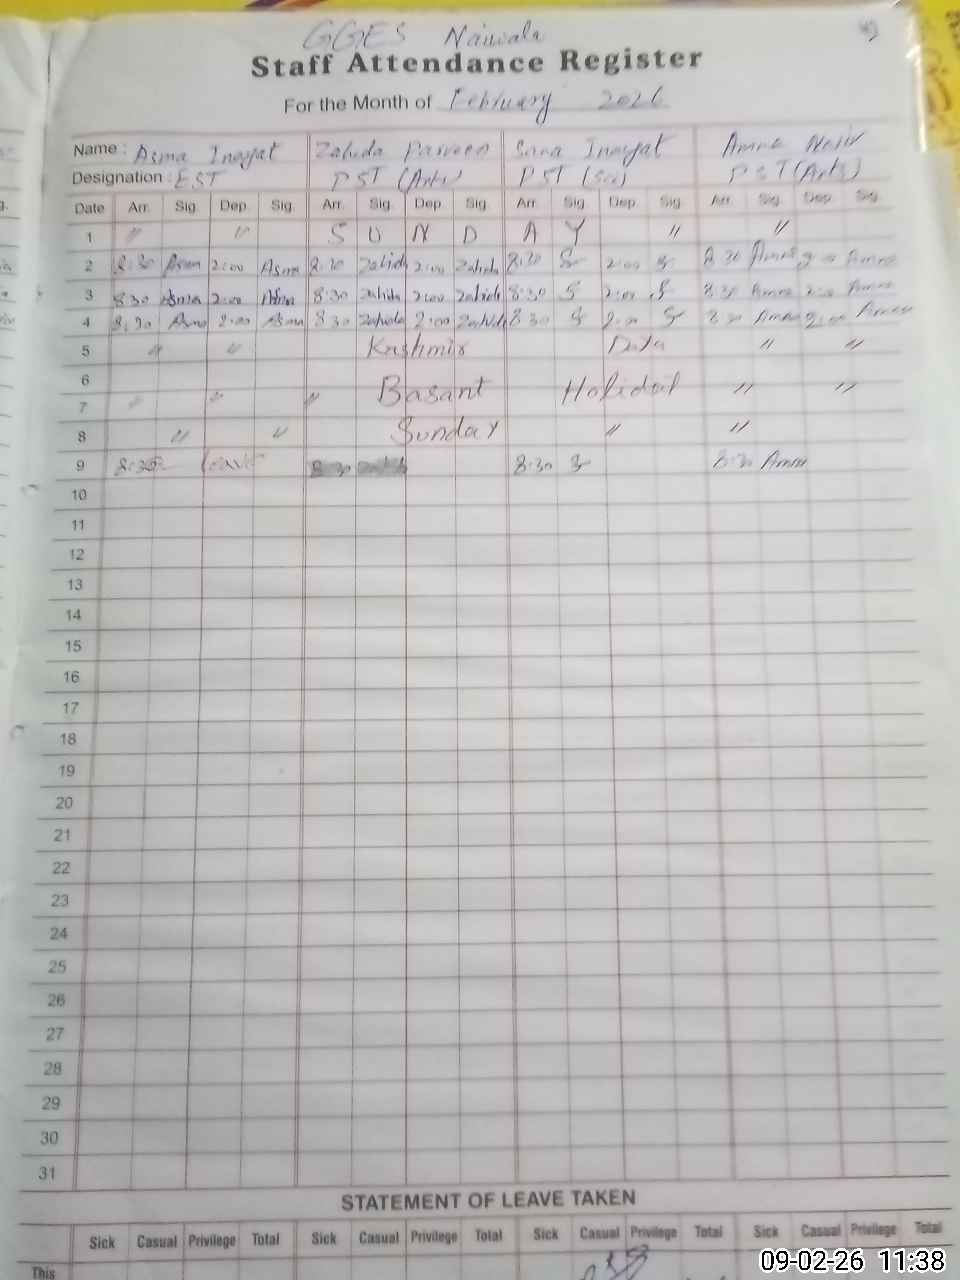 GGES Naiwala
Staff Attendance Register
For the Month of February 2026
Name: Asma Inayat Zahida Parveen Sana Inayat Amna Nasir
Designation: EST PST (Arts) PST (Sci) PST (Arts)
Date Arr. Sig. Dep. Sig. Arr. Sig. Dep. Sig. Arr. Sig. Dep. Sig. Arr. Sig. Dep. Sig.
1 " " S U N D A Y " "
2 8:30 Asma 2:00 Asma 8:30 Zahida 2:00 Zahida 8:30 S 2:00 S 8:30 Amna 2:00 Amna
3 8:30 Asma 2:00 Asma 8:30 Zahida 2:00 Zahida 8:30 S 2:00 S 8:30 Amna 2:00 Amna
4 8:30 Asma 2:00 Asma 8:30 Zahida 2:00 Zahida 8:30 S 2:00 S 8:30 Amna 2:00 Amna
5 " " Kashmir Day " "
6
Basant Holiday " "
7 " " "
8 " " Sunday " "
9 8:30 leave 8:30 8:30 S 8:30 Amna
10
11
12
13
14
15
16
17
18
19
20
21
22
23
24
25
26
27
28
29
30
31
STATEMENT OF LEAVE TAKEN
Sick Casual Privilege Total Sick Casual Privilege Total Sick Casual Privilege Total Sick Casual Privilege Total
This
09-02-26 11:38